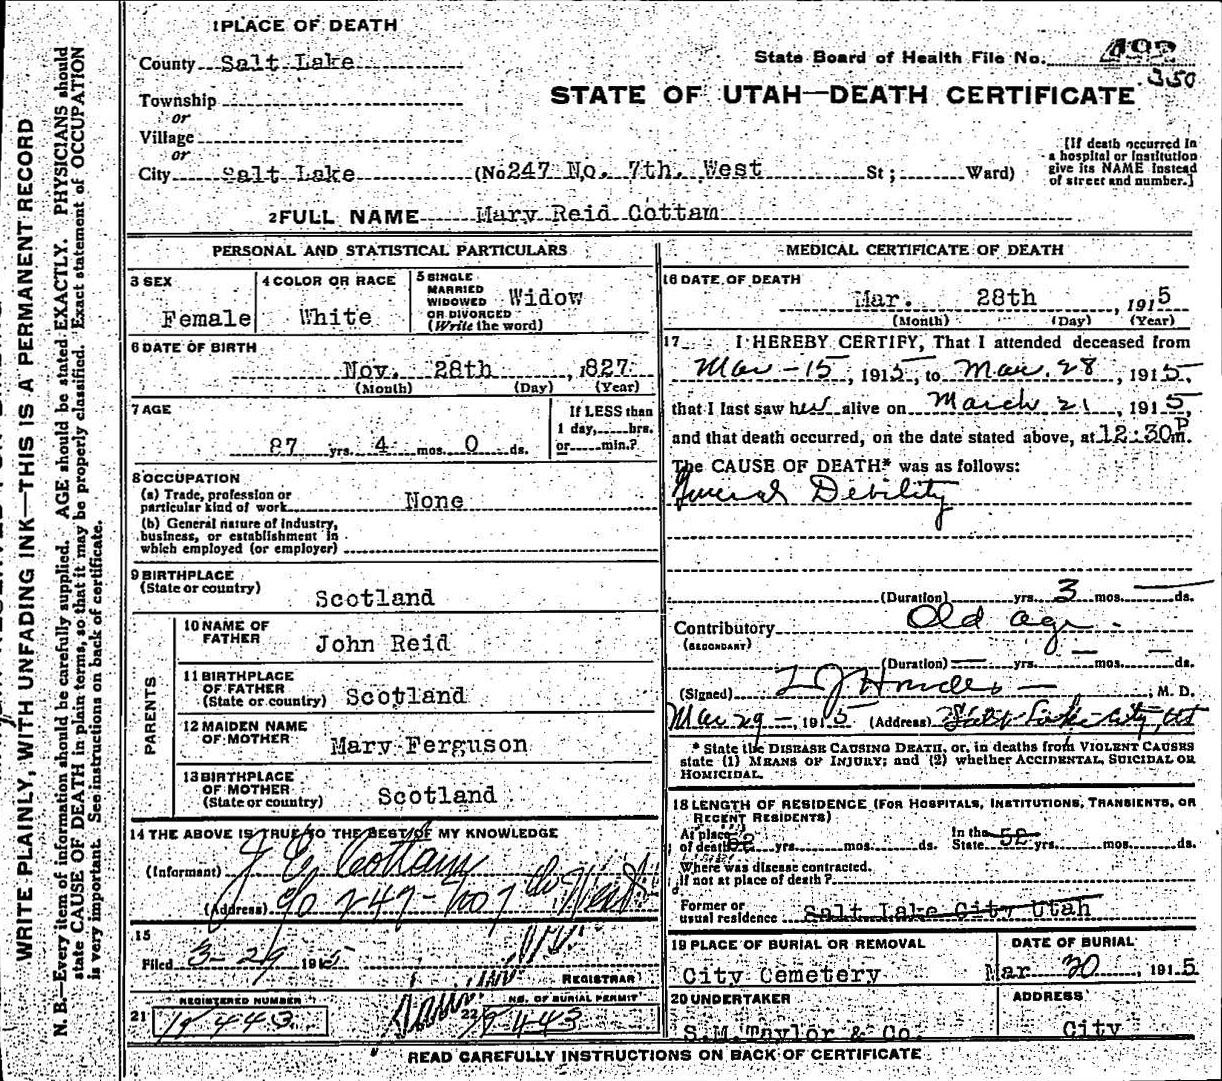 1 PLACE OF DEATH
County Salt Lake
Township
or
Village
or
City Salt Lake (No 247 No. 7th. West St; Ward)
State Board of Health File No. 492
350
STATE OF UTAH—DEATH CERTIFICATE
[If death occurred in
a hospital or institution
give its NAME instead
of street and number.]
2 FULL NAME Mary Reid Cottam
PERSONAL AND STATISTICAL PARTICULARS
3 SEX
Female
4 COLOR OR RACE
White
5 SINGLE
MARRIED
WIDOWED
OR DIVORCED
(Write the word)
Widow
6 DATE OF BIRTH
Nov. 28th , 1827
(Month) (Day) (Year)
7 AGE
87 yrs. 4 mos. 0 ds.
If LESS than
1 day, hrs.
or min.?
8 OCCUPATION
(a) Trade, profession or
particular kind of work None
(b) General nature of industry,
business, or establishment in
which employed (or employer)
9 BIRTHPLACE
(State or country)
Scotland
PARENTS
10 NAME OF
FATHER
John Reid
11 BIRTHPLACE
OF FATHER
(State or country) Scotland
12 MAIDEN NAME
OF MOTHER
Mary Ferguson
13 BIRTHPLACE
OF MOTHER
(State or country) Scotland
14 THE ABOVE IS TRUE TO THE BEST OF MY KNOWLEDGE
(Informant) Cottam
(Address) 247 - No 7th West
15
Filed 3-29 1915
REGISTRAR
REGISTERED NUMBER
21 19443
NO. OF BURIAL PERMIT
22 19443
MEDICAL CERTIFICATE OF DEATH
16 DATE OF DEATH
Mar. 28th , 1915
(Month) (Day) (Year)
17 I HEREBY CERTIFY, That I attended deceased from
Mar - 15, 1915, to Mar. 28, 1915,
that I last saw her alive on March 21, 1915,
and that death occurred, on the date stated above, at 12:30 P m.
The CAUSE OF DEATH* was as follows:
General Debility
(Duration) yrs. 3 mos. — ds.
Contributory Old age.
(SECONDARY)
(Duration) — yrs. — mos. — ds.
(Signed) M. D.
Mar 29 - 1915 (Address) Salt Lake City, Ut
* State the DISEASE CAUSING DEATH, or, in deaths from VIOLENT CAUSES
state (1) MEANS OF INJURY; and (2) whether ACCIDENTAL, SUICIDAL OR
HOMICIDAL.
18 LENGTH OF RESIDENCE (FOR HOSPITALS, INSTITUTIONS, TRANSIENTS, OR
RECENT RESIDENTS)
At place
of death 52 yrs. mos. ds.
In the
State 52 yrs. mos. ds.
Where was disease contracted.
if not at place of death?
Former or
usual residence Salt Lake City Utah
19 PLACE OF BURIAL OR REMOVAL
City Cemetery
DATE OF BURIAL
Mar 30, 1915
20 UNDERTAKER
S.M. Taylor & Co.
ADDRESS
City
READ CAREFULLY INSTRUCTIONS ON BACK OF CERTIFICATE
WRITE PLAINLY, WITH UNFADING INK—THIS IS A PERMANENT RECORD
N. B.—Every item of information should be carefully supplied. AGE should be stated EXACTLY. PHYSICIANS should
state CAUSE OF DEATH in plain terms, so that it may be properly classified. Exact statement of OCCUPATION
is very important. See instructions on back of certificate.